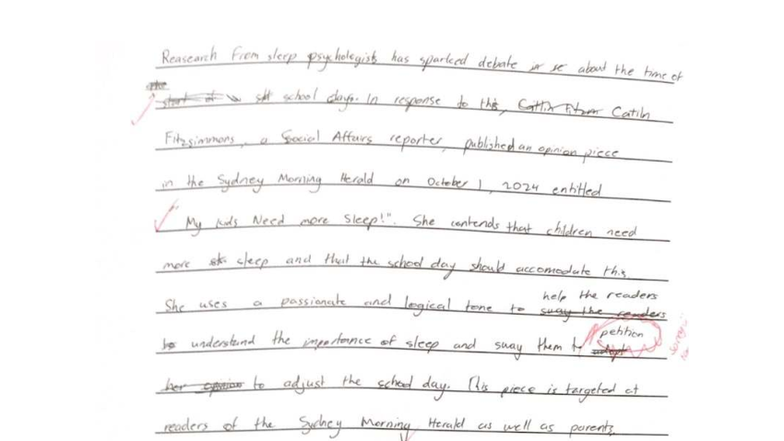 Reasearch from sleep psychologists has sparked debate about the time of
school days. In response to this, Catlin
Fitzsimmons, a Social Affairs reporter, published an opinion piece
in the Sydney Morning Herald on October 1, 2024 entitled
"My kids Need more Sleep!". She contends that children need
more sleep and that the school day should accomodate this.
help the readers
She uses a passionate and logical tone to sway the readers
petition
to understand the importance of sleep and sway them to
her opinion to adjust the school day. This piece is targeted at
readers of the Sydney Morning Herald as well as parents.